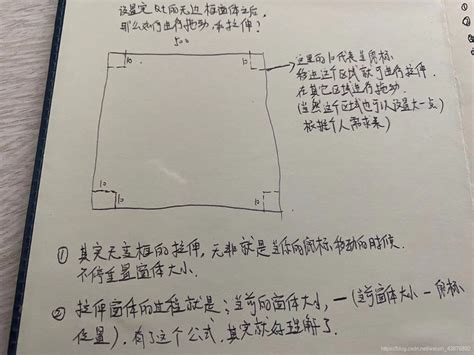 设置完Qt的无边框窗体之后,
那么如何进行拖动和拉伸?
500
10
10
10
10
10
这里的10代表当鼠标
移进这个区域就可进行拉伸,
在其它区域进行拖动.
(当然这个区域也可以设置大一点)
根据个人需求来)
① 其实无边框的拉伸,无非就是当你的鼠标移动的时候.
不停重置窗体大小.
② 拉伸窗体的过程就是:当前的窗体大小,—(当前窗体大小 — 鼠标
位置).有了这个公式.其实就好理解了.
https://blog.csdn.net/weixin_43976892